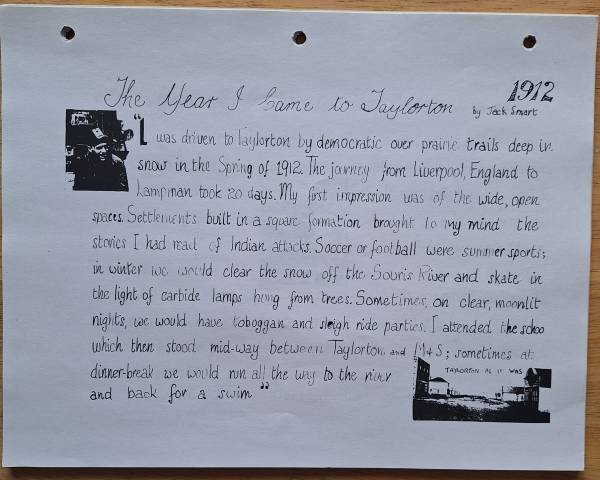 The Year I Came to Taylorton
1912
by Jack Smart
"I was driven to Taylorton by democratic over prairie trails deep in
snow in the Spring of 1912. The journey from Liverpool, England to
Lampman took 20 days. My first impression was of the wide, open
spaces. Settlements built in a square formation brought to my mind the
stories I had read of Indian attacks. Soccer or football were summer sports;
in winter we would clear the snow off the Souris River and skate in
the light of carbide lamps hung from trees. Sometimes, on clear, moonlit
nights, we would have toboggan and sleigh ride parties. I attended the schoo
which then stood mid-way between Taylorton and M&S; sometimes at
dinner-break we would run all the way to the river
and back for a swim"
TAYLORTON AS IT WAS